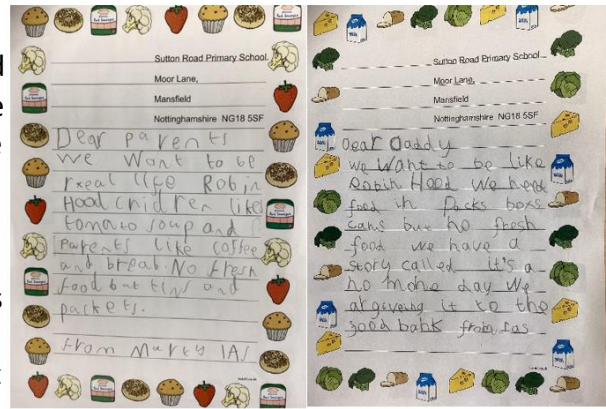 Sutton Road Primary School
Moor Lane,
Mansfield
Nottinghamshire NG18 5SF
Dear parents
we Want to be
rxeal life Robin
Hood Children like
tomato soup and
Parents like coffee
and bread. No fresh
food but tins and
packets.
from Marty 1AS
Sutton Road Primary School
Moor Lane,
Mansfield
Nottinghamshire NG18 5SF
Dear Daddy
we want to be like
Robin Hood We need
food in Packs boxs
cans but no fresh
food we have a
story called it's a
no mone day We
at giveing it to the
food bank from